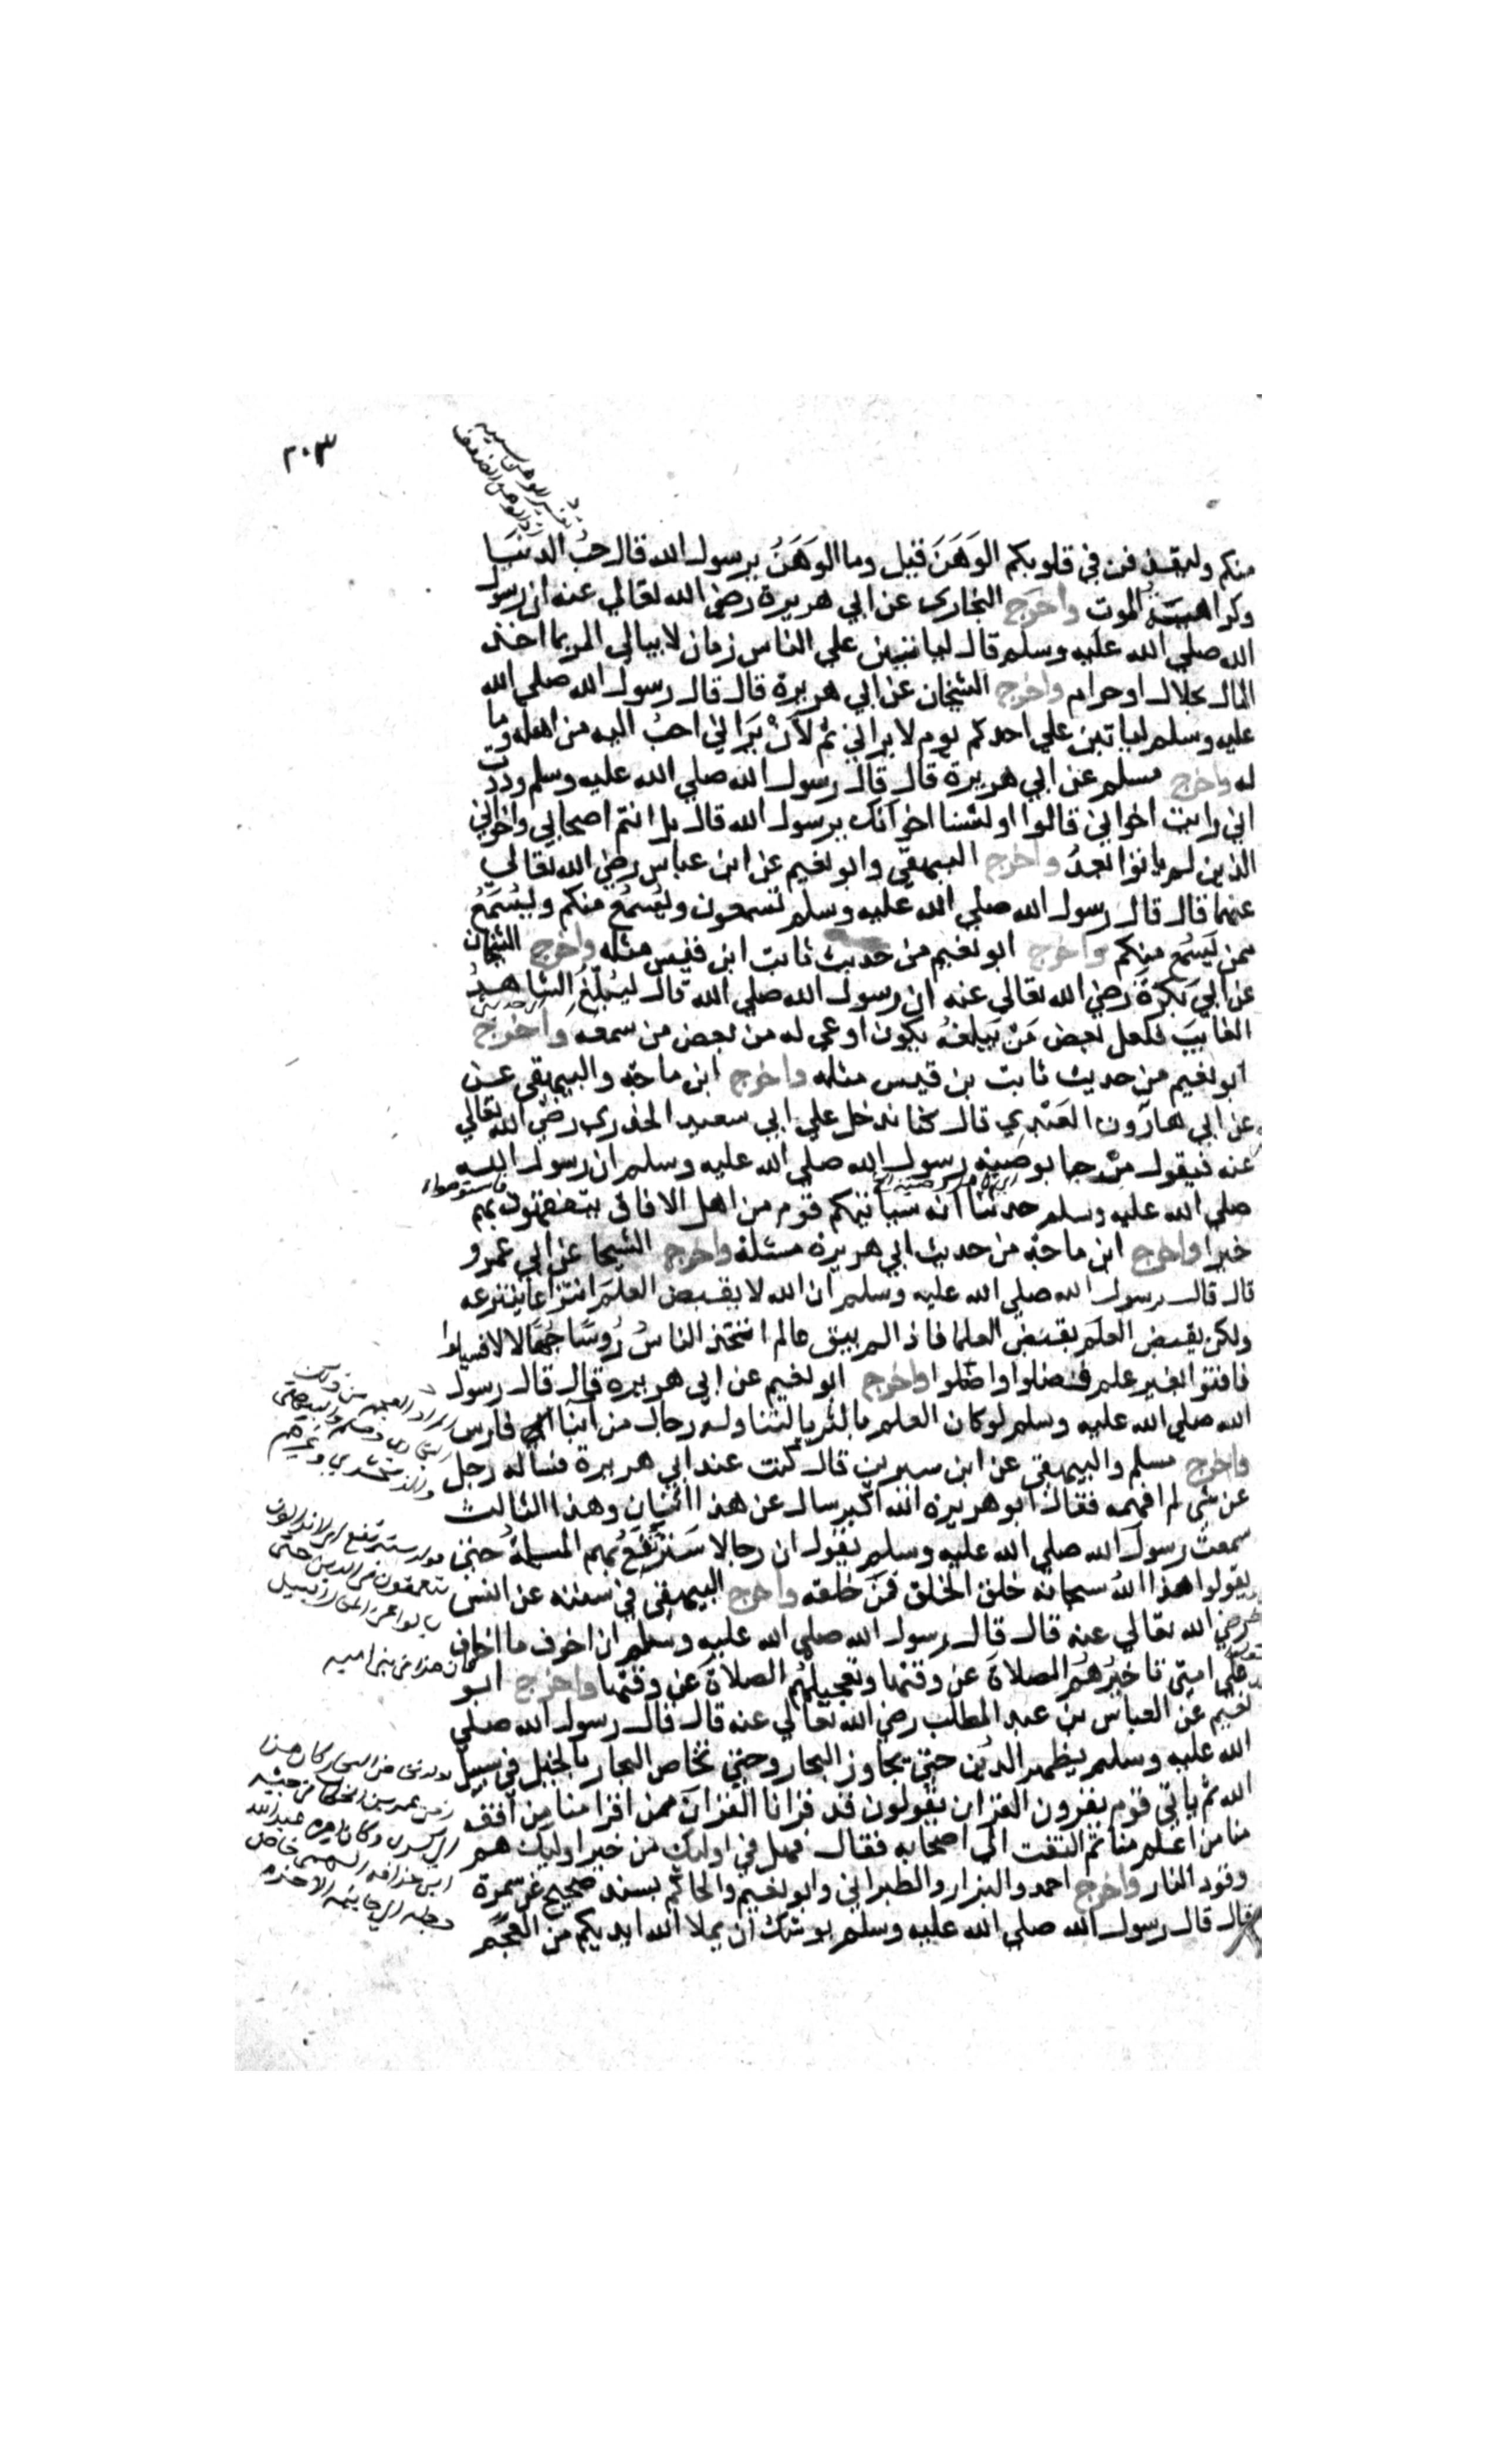 ٢٠٣
منكم وليقذفن في قلوبكم الوَهَنَ قيل وما الوَهَنُ يرسول الله قال حبُ الدنيَا
وكراهيتَه الموتِ واخرج البخاري عن ابي هريرة رضي الله تعالي عنه ان رسول
الله صلي الله عليه وسلم قال لياتين علي الناس زمان لا يبالي المر بما اخذ
المال بحلال او حرام واخرج الشيخان عن ابي هريرة قال قال رسول الله صلي الله
عليه وسلم لياتين علي احدكم يوم لا يراني ثم لأنْ يَرَاني احبُ اليه من اهله وما
له واخرج مسلم عن ابي هريرة قال قال رسول الله صلي الله عليه وسلم وددت
اني رايت اخواني قالوا اولسنا اخوانك يرسول الله قال بل انتم اصحابي واخواني
الذين لم ياتوا بعدُ واخرج البيهقي وابو نعيم عن ابن عباس رضي الله تعالي
عنهما قال قال رسول الله صلي الله عليه وسلم تسمعون ويُسمَعُ منكم ويُسمَعُ
ممن يَسمع منكم واخرج ابو نعيم من حديث ثابت ابن قيس مثله واخرج الشيخان
عن ابي بَكرَةَ رضي الله تعالي عنه ان رسول الله صلي الله قال ليُبلّغُ الشاهدُ
الغايبَ فلعل بعض مَن يَبلغُه يكون اوعي له من بعض من سمعه واخرج
ابو نعيم من حديث ثابت بن قيس مثله واخرج ابن ماجة والبيهقي عن
عن ابي هارون العَبْدِي قال كنا ندخل علي ابي سعيد الخدري رضي الله تعالي
عنه فيقول مرْحبا بوصية رسول الله صلي الله عليه وسلم ان رسول الله
صلي الله عليه وسلم حدثنا انه سياتيكم قوم من اهل الافاق يتفقهون فاستوصوا بهم
خيرا واخرج ابن ماجة من حديث ابي هريرة مثله واخرج الشيخا عن ابي عمرو
قال قال رسول الله صلي الله عليه وسلم ان الله لا يقبض العلمَ انتزاعا ينتزعه
ولكن يقبض العلمَ بقبض العلما فاذا لم يبق عالم اتخذ الناسُ رُوسًا جُهّالا لا فسيلوا
فافتوا بغير علم فضلوا واضلوا واخرج ابو نعيم عن ابي هريره قال قال رسول
الله صلي الله عليه وسلم لو كان العلم بالثريا لتناوله رجال من ابنا فارس
واخرج مسلم والبيهقي عن ابن سيرين قال كنت عند ابي هريرة فساله رجل
عن شي لم افهمه فقال ابو هريره الله اكبر سال عن هذا اثنان وهذا الثالث
سمعت رسول الله صلي الله عليه وسلم يقول ان رجالا سَترتَفِعُ بهم المسلةُ حتي
يقولوا هذا اللهُ سبحانه خلق الخلق فمَن خلقه واخرج البيهقي في سننه عن انس
رضي الله تعالي عنه قال قال رسول الله صلي الله عليه وسلم ان اخوف ما اخاف
علي امتي تاخيرُهُم الصلاةَ عن وقتها وتعجيلهُم الصلاةَ عن وقتها واخرج ابو
نعيم عن العباس بن عبد المطلب رضي الله تعالي عنه قال قال رسول الله صلي
الله عليه وسلم يظهر الدين حتي يجاوز البحار وحتي تخاض البحار بالخيل في سبيل
الله ثم ياتي قوم يقرون القران يقولون قد قرانا القرانَ فمن اقرا منا مِن افقه
منا من اعلم منا ثم التفت الي اصحابه فقال فهل في اوليك من خير اوليك هم
وقود النار واخرج احمد والبزار والطبراني وابو نعيم والحاكم بسند صحيح عن سمرة
قال قال رسول الله صلي الله عليه وسلم يوشك ان يملا الله ايديكم من العجَم
المراد العجم من ذلك
البخاري ومسلم والبيهقي
والزمخشري وغيرهم
يتعمقون في الدين حتي
كان هذا في بني اميه